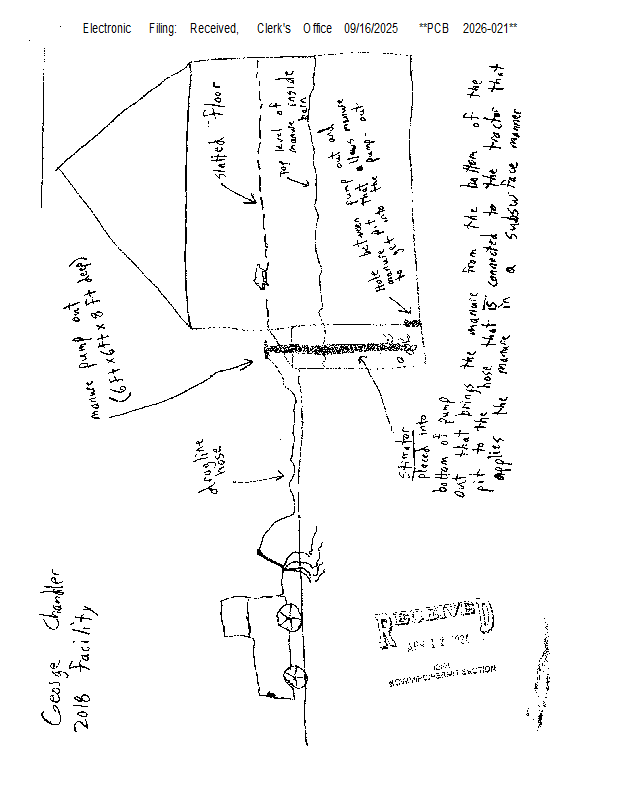 Electronic Filing: Received, Clerk's Office 09/16/2025 **PCB 2026-021**
George Chandler
2018 Facility
manure pump out
(6ft x 6ft x 8ft deep)
dragline
hose
slatted floor
Top level of
manure inside
barn
Hole between pump out and
manure pit that allows manure
to get into the pump-out
Stirrator
placed into
bottom of pump
out that brings the manure from the bottom of the
pit to the hose that is connected to the tractor that
applies the manure in a subsurface manner
RECEIVED
APR 12
SECTION